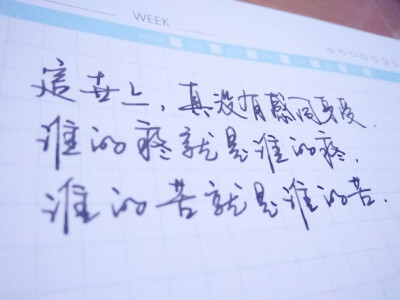 WEEK
這世上，真没有感同身受.
谁的疼就是谁的疼.
谁的苦就是谁的苦.